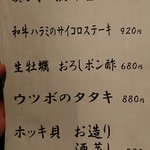 和牛ハラミのサイコロステーキ 920円
生牡蠣 おろしポン酢 680円
ウツボのタタキ 880円
ホッキ貝 お造り
酒蒸し